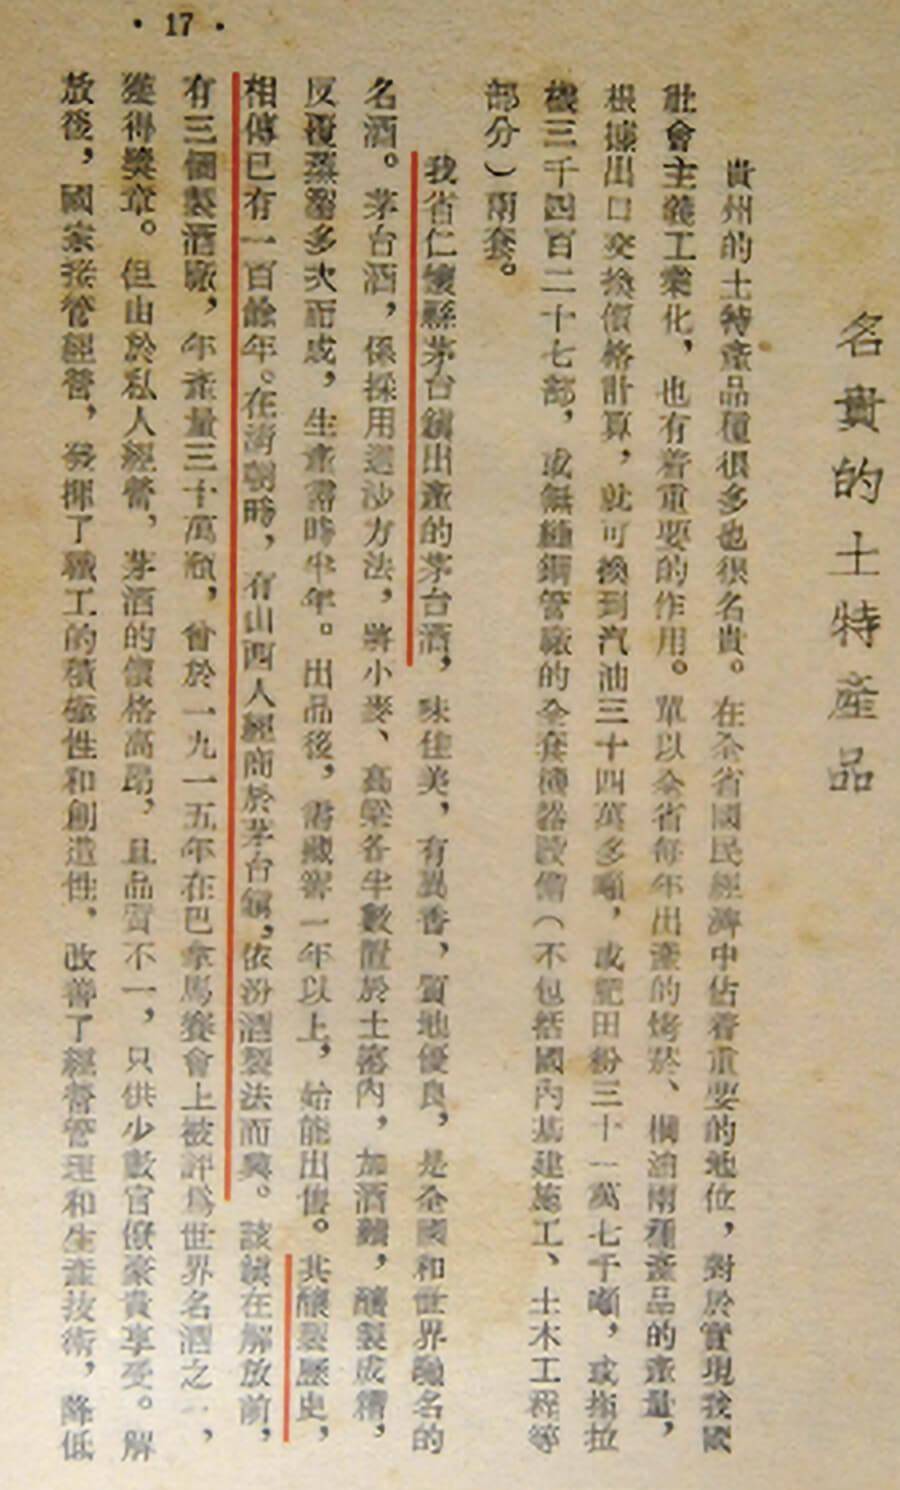 · 17 ·
名貴的土特產品
貴州的土特產品種很多也很名貴。在全省國民經濟中佔着重要的地位，對於實現我國
社會主義工業化，也有着重要的作用。單以全省每年出產的烤菸、桐油兩種產品的產量，
根據出口交換價格計算，就可換到汽油三十四萬多噸，或肥田粉三十一萬七千噸，或拖拉
機三千四百二十七部，或無縫鋼管廠的全套機器設備（不包括國內基建施工、土木工程等
部分）兩套。
我省仁懷縣茅台鎮出產的茅台酒，味佳美，有異香，質地優良，是全國和世界聞名的
名酒。茅台酒，係採用迴沙方法，將小麥、高粱各半數置於土窖內，加酒麯，釀製成糟，
反覆蒸溜多次而成，生產需時半年。出品後，需藏窖一年以上，始能出售。其釀製歷史，
相傳已有一百餘年。在清朝時，有山西人經商於茅台鎮，依汾酒製法而興。該鎮在解放前，
有三個製酒廠，年產量三十萬瓶，曾於一九一五年在巴拿馬賽會上被評爲世界名酒之一，
獲得獎章。但由於私人經營，茅酒的價格高昂，且品質不一，只供少數官僚豪貴享受。解
放後，國家接管經營，發揮了職工的積極性和創造性，改善了經營管理和生產技術，降低